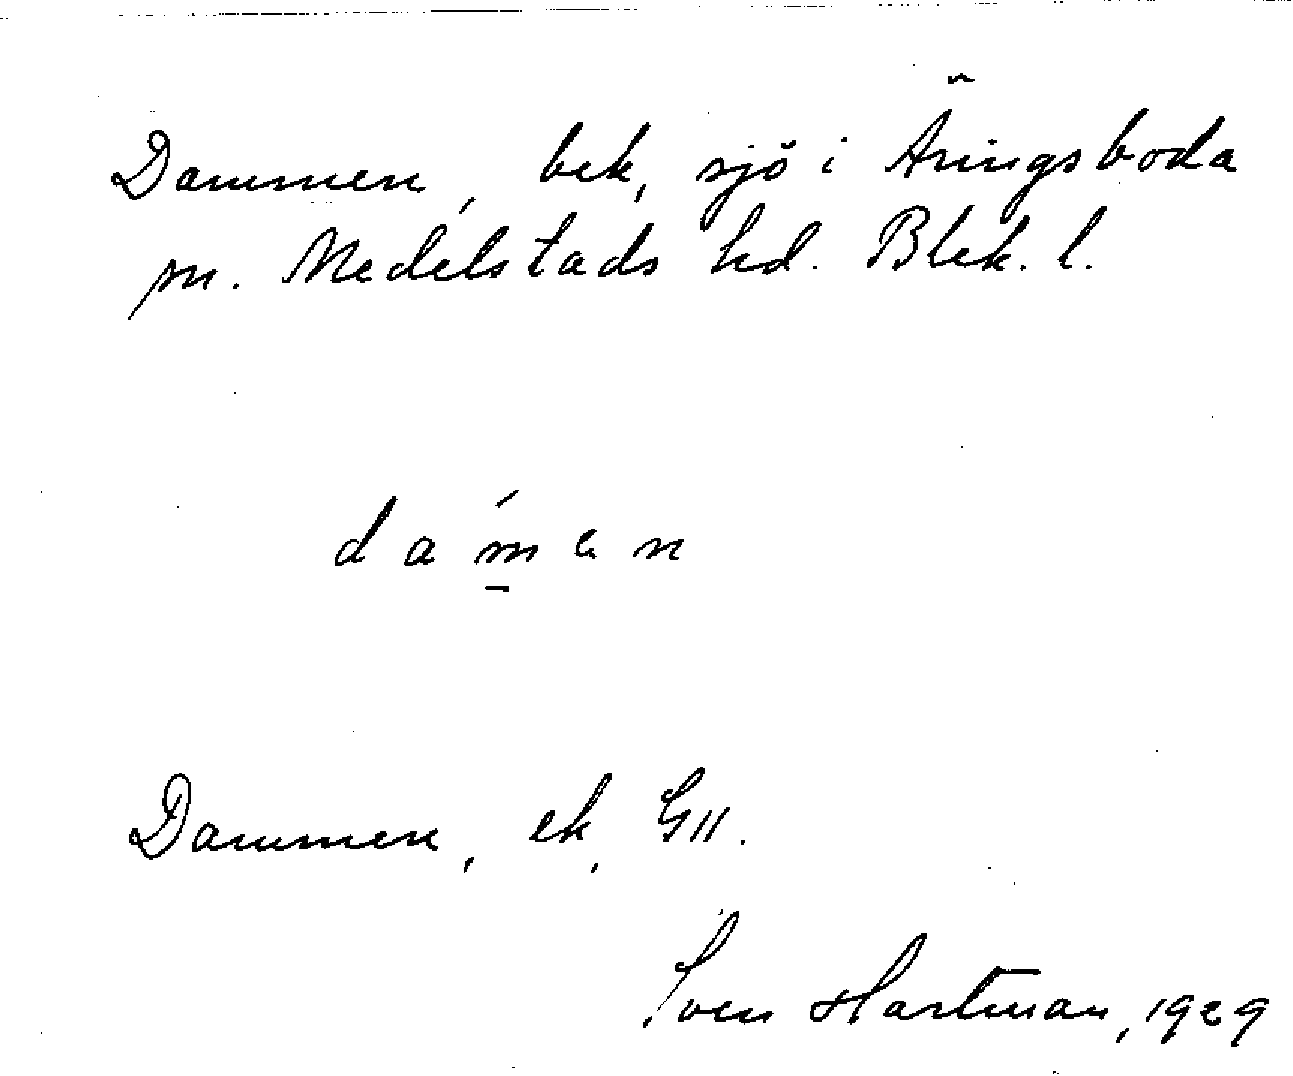 Dammen, bek, sjö i Äringsboda
sn. Medelstads hd. Blek. l.
dámen
Dammen, ek, GII.
Sven Hartman, 1929